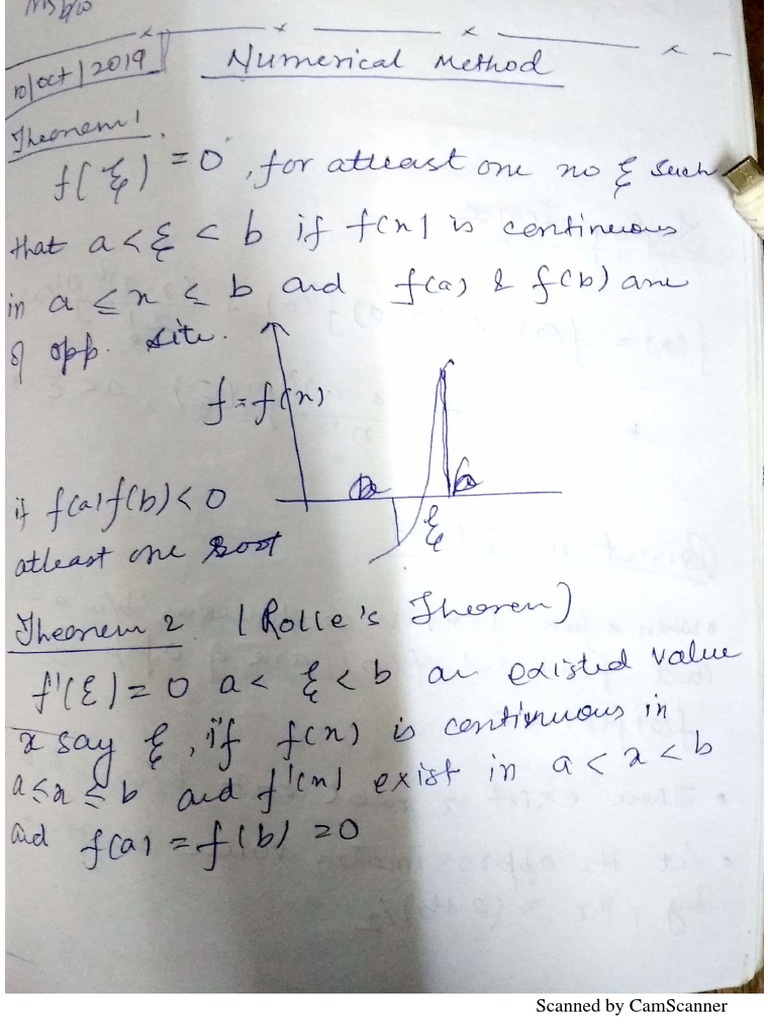 10/oct/2019
Numerical Method
Theorem 1
f(ξ) = 0, for atleast one no ξ such
that a < ξ < b if f(x) is continuous
in a ≤ x ≤ b and f(a) & f(b) are
of opp. site.
f = f(x)
if f(a) f(b) < 0
ξ
atleast one root
Theorem 2 (Rolle's Theorem)
f'(ξ) = 0 a < ξ < b an existed value
x say ξ, if f(x) is continuous in
a ≤ x ≤ b and f'(x) exist in a < x < b
and f(a) = f(b) = 0
Scanned by CamScanner